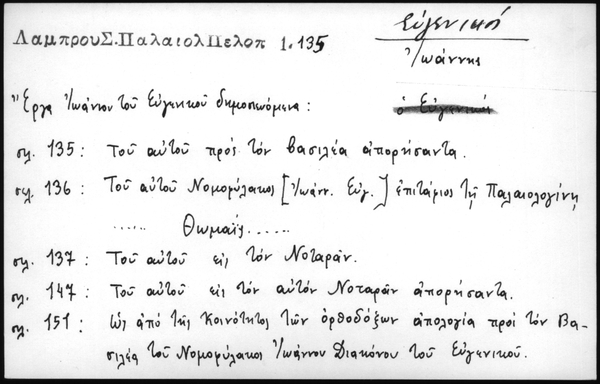 Λαμπρου Σ. Παλαιολ Πελοπ 1.135
Εὐγενικός
Ἰωάννης
Ἔργα Ἰωάννου τοῦ Εὐγενικοῦ δημοσιευόμενα:
ὁ Εὐγενικός
σελ. 135: Τοῦ αὐτοῦ πρὸς τὸν βασιλέα ἀπορήσαντα.
σελ. 136: Τοῦ αὐτοῦ Νομοφύλακος [Ἰωάνν. Εὐγ.] ἐπιτάφιος τῇ Παλαιολογίνῃ
...... Θωμαΐς ......
σελ. 137: Τοῦ αὐτοῦ εἰς τὸν Νοταρᾶν.
σελ. 147: Τοῦ αὐτοῦ εἰς τὸν αὐτὸν Νοταρᾶν ἀπορήσαντα.
σελ. 151: Ὡς ἀπὸ τῆς κοινότητος τῶν ὀρθοδόξων ἀπολογία πρὸς τὸν Βα-
σιλέα τοῦ Νομοφύλακος Ἰωάννου Διακόνου τοῦ Εὐγενικοῦ.